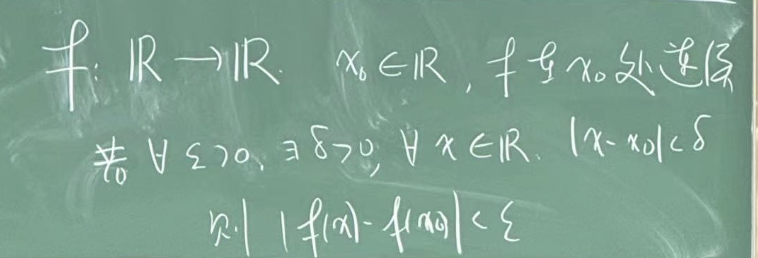 f: ℝ→ℝ. x₀∈ℝ, f在x₀处连续
若 ∀ε>0, ∃δ>0, ∀x∈ℝ. |x-x₀|<δ
则 |f(x)-f(x₀)|<ε